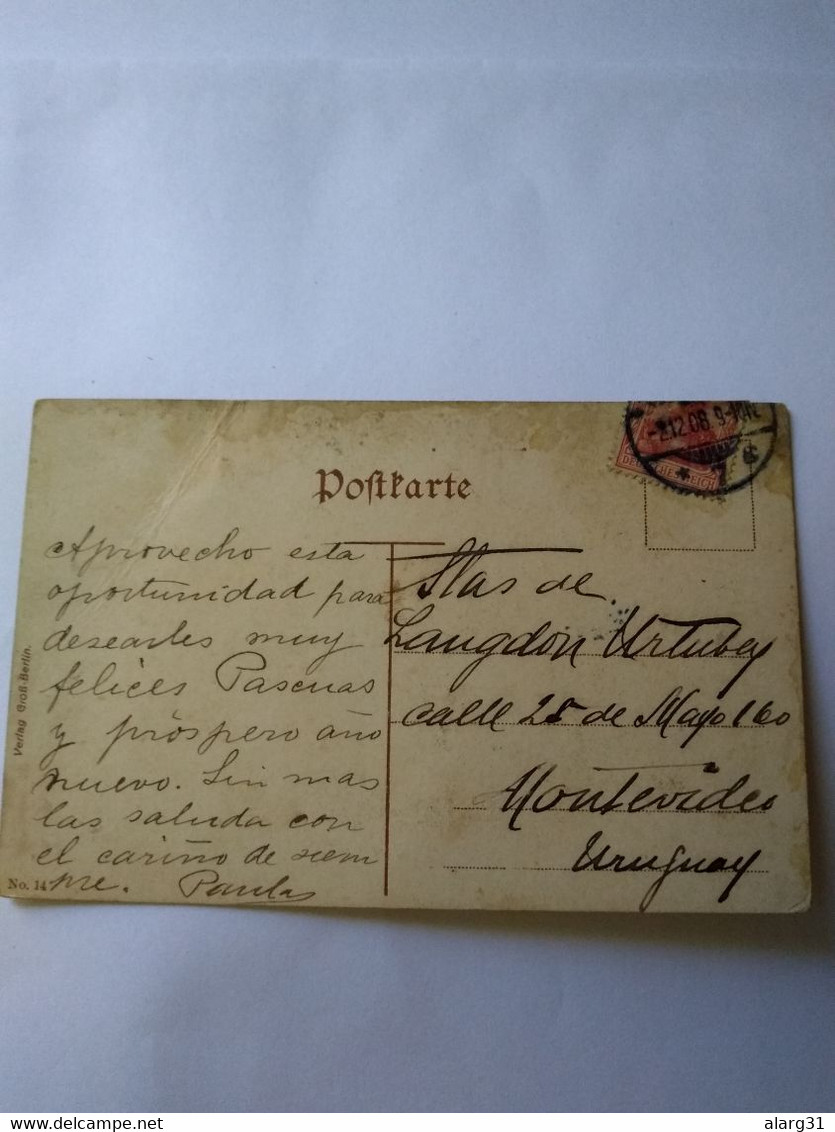 -2.12.08. 9-10N.
* 7 c
DEUTSCHES REICH
Postkarte
Aprovecho esta
oportunidad para
desearles muy
felices Pascuas
y próspero año
nuevo. Sin mas
las saluda con
el cariño de siem
pre. Paula
Stas de
Langdon Urtubey
calle 25 de Mayo 160
Montevideo
Uruguay
Verlag Groß-Berlin.
No. 14
delcampe.net
alarg31